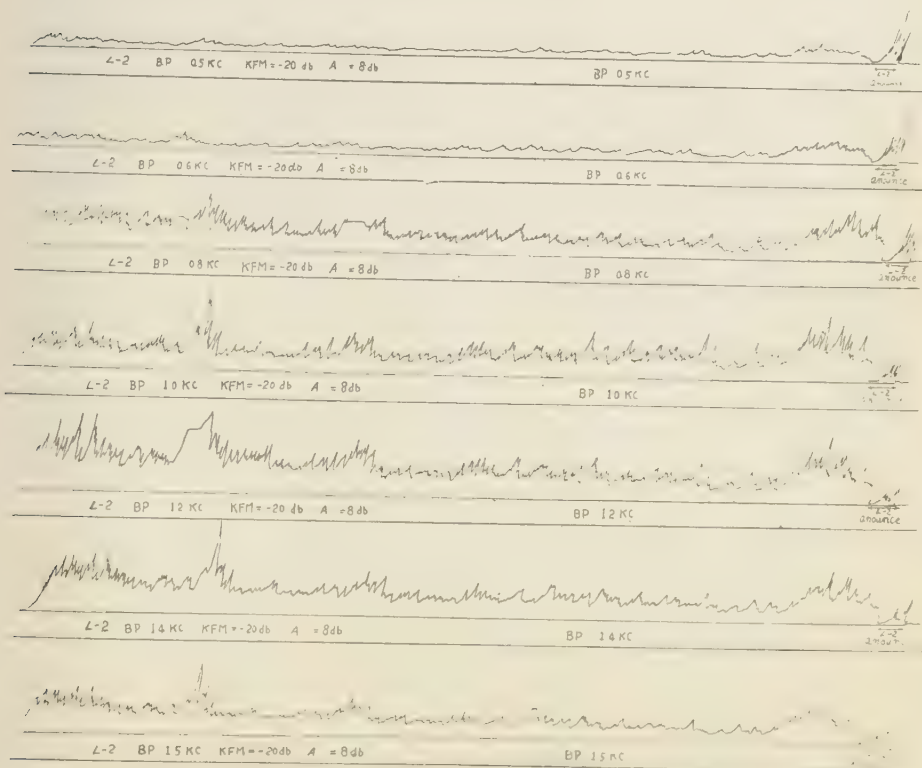 L-2 BP 0.5 KC KFM = -20 db A = 8 db BP 0.5 KC
L-2
anounce
L-2 BP 0.6 KC KFM = -20 db A = 8 db BP 0.6 KC
L-2
anounce
L-2 BP 0.8 KC KFM = -20 db A = 8 db BP 0.8 KC
L-2
anounce
L-2 BP 1.0 KC KFM = -20 db A = 8 db BP 1.0 KC
L-2
L-2 BP 1.2 KC KFM = -20 db A = 8 db BP 1.2 KC
L-2
anounce
L-2 BP 1.4 KC KFM = -20 db A = 8 db BP 1.4 KC
L-2
L-2 BP 1.5 KC KFM = -20 db A = 8 db BP 1.5 KC